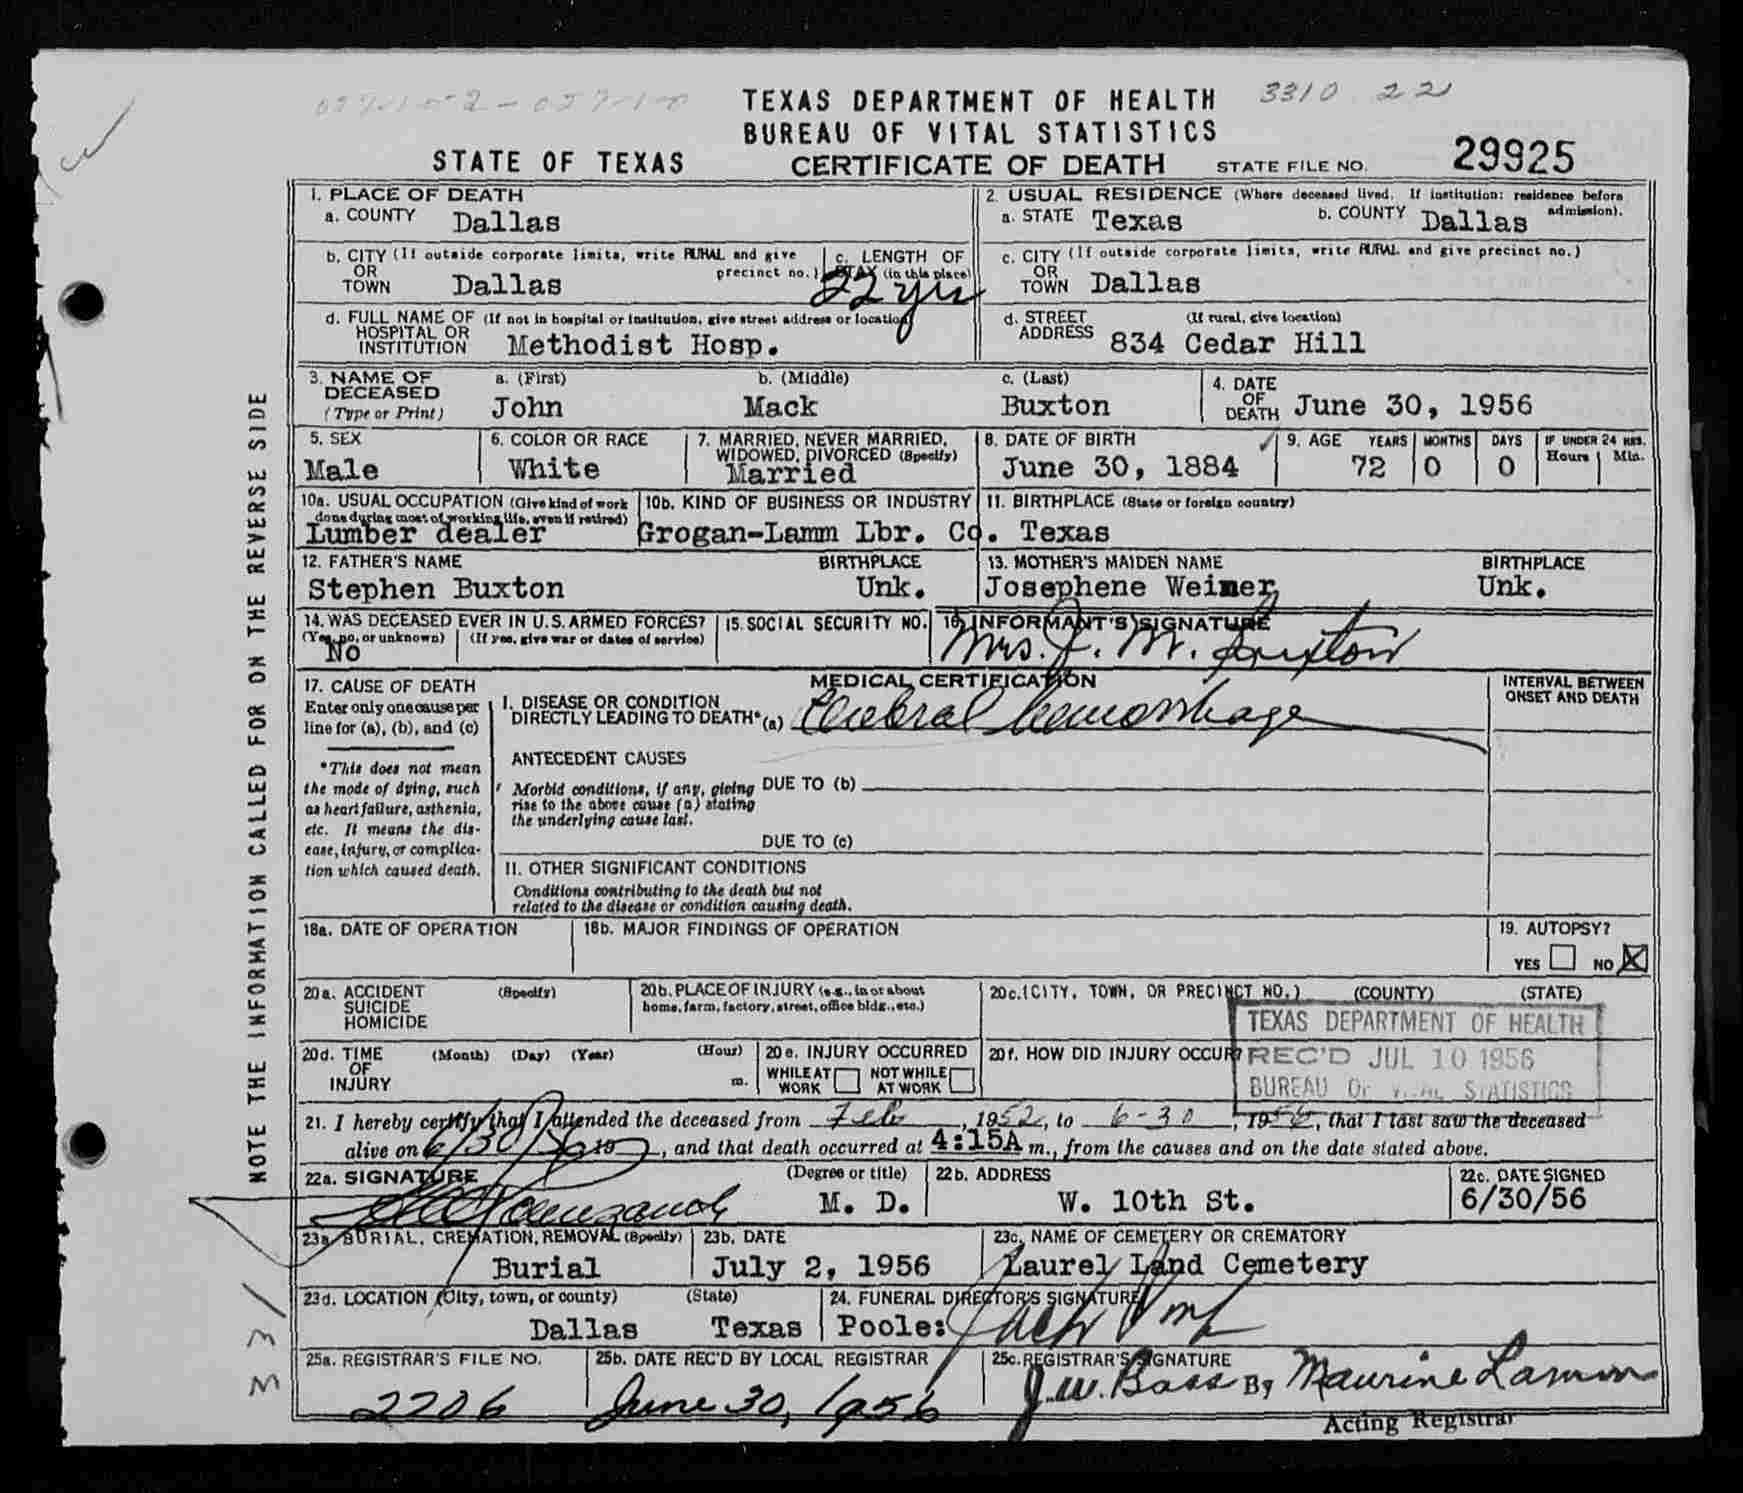 3310 221
TEXAS DEPARTMENT OF HEALTH
BUREAU OF VITAL STATISTICS
STATE OF TEXAS CERTIFICATE OF DEATH STATE FILE NO. 29925
1. PLACE OF DEATH
a. COUNTY Dallas
2. USUAL RESIDENCE (Where deceased lived. If institution: residence before admission).
a. STATE Texas b. COUNTY Dallas
b. CITY (If outside corporate limits, write RURAL and give precinct no.)
OR
TOWN Dallas
c. LENGTH OF
STAY (in this place)
22 yrs
c. CITY (If outside corporate limits, write RURAL and give precinct no.)
OR
TOWN Dallas
d. FULL NAME OF (If not in hospital or institution, give street address or location)
HOSPITAL OR
INSTITUTION Methodist Hosp.
d. STREET (If rural, give location)
ADDRESS 834 Cedar Hill
3. NAME OF
DECEASED
(Type or Print)
a. (First) b. (Middle) c. (Last)
John Mack Buxton
4. DATE
OF
DEATH June 30, 1956
5. SEX
Male
6. COLOR OR RACE
White
7. MARRIED, NEVER MARRIED,
WIDOWED, DIVORCED (Specify)
Married
8. DATE OF BIRTH
June 30, 1884
9. AGE YEARS MONTHS DAYS IF UNDER 24 HRS.
Hours Min.
72 0 0
10a. USUAL OCCUPATION (Give kind of work
done during most of working life, even if retired)
Lumber dealer
10b. KIND OF BUSINESS OR INDUSTRY
Grogan-Lamm Lbr. Co.
11. BIRTHPLACE (State or foreign country)
Texas
12. FATHER'S NAME BIRTHPLACE
Stephen Buxton Unk.
13. MOTHER'S MAIDEN NAME BIRTHPLACE
Josephene Weimer Unk.
14. WAS DECEASED EVER IN U.S. ARMED FORCES?
(Yes, no, or unknown) (If yes, give war or dates of service)
No
15. SOCIAL SECURITY NO.
16. INFORMANT'S SIGNATURE
Mrs. J. M. Buxton
17. CAUSE OF DEATH
Enter only one cause per
line for (a), (b), and (c)
*This does not mean
the mode of dying, such
as heart failure, asthenia,
etc. It means the dis-
ease, injury, or complica-
tion which caused death.
MEDICAL CERTIFICATION
I. DISEASE OR CONDITION
DIRECTLY LEADING TO DEATH* (a) Cerebral hemorrhage
ANTECEDENT CAUSES
Morbid conditions, if any, giving
rise to the above cause (a) stating
the underlying cause last.
DUE TO (b)
DUE TO (c)
II. OTHER SIGNIFICANT CONDITIONS
Conditions contributing to the death but not
related to the disease or condition causing death.
INTERVAL BETWEEN
ONSET AND DEATH
18a. DATE OF OPERATION 18b. MAJOR FINDINGS OF OPERATION 19. AUTOPSY?
YES NO X
20a. ACCIDENT (Specify)
SUICIDE
HOMICIDE
20b. PLACE OF INJURY (e.g., in or about
home, farm, factory, street, office bldg., etc.)
20c. (CITY, TOWN, OR PRECINCT NO.) (COUNTY) (STATE)
20d. TIME (Month) (Day) (Year) (Hour)
OF
INJURY m.
20e. INJURY OCCURRED
WHILE AT
WORK
NOT WHILE
AT WORK
20f. HOW DID INJURY OCCUR?
TEXAS DEPARTMENT OF HEALTH
REC'D JUL 10 1956
BUREAU OF VITAL STATISTICS
21. I hereby certify that I attended the deceased from Feb, 1952, to 6-30, 1956, that I last saw the deceased
alive on 6/30/56 19, and that death occurred at 4:15A m., from the causes and on the date stated above.
22a. SIGNATURE (Degree or title)
M. D.
22b. ADDRESS
W. 10th St.
22c. DATE SIGNED
6/30/56
23a. BURIAL, CREMATION, REMOVAL (Specify)
Burial
23b. DATE
July 2, 1956
23c. NAME OF CEMETERY OR CREMATORY
Laurel Land Cemetery
23d. LOCATION (City, town, or county) (State)
Dallas Texas
24. FUNERAL DIRECTOR'S SIGNATURE
Poole: Jack
25a. REGISTRAR'S FILE NO.
2206
25b. DATE REC'D BY LOCAL REGISTRAR
June 30, 1956
25c. REGISTRAR'S SIGNATURE
J.W. Bass By Maurine
Acting Registrar
NOTE THE INFORMATION CALLED FOR ON THE REVERSE SIDE
331